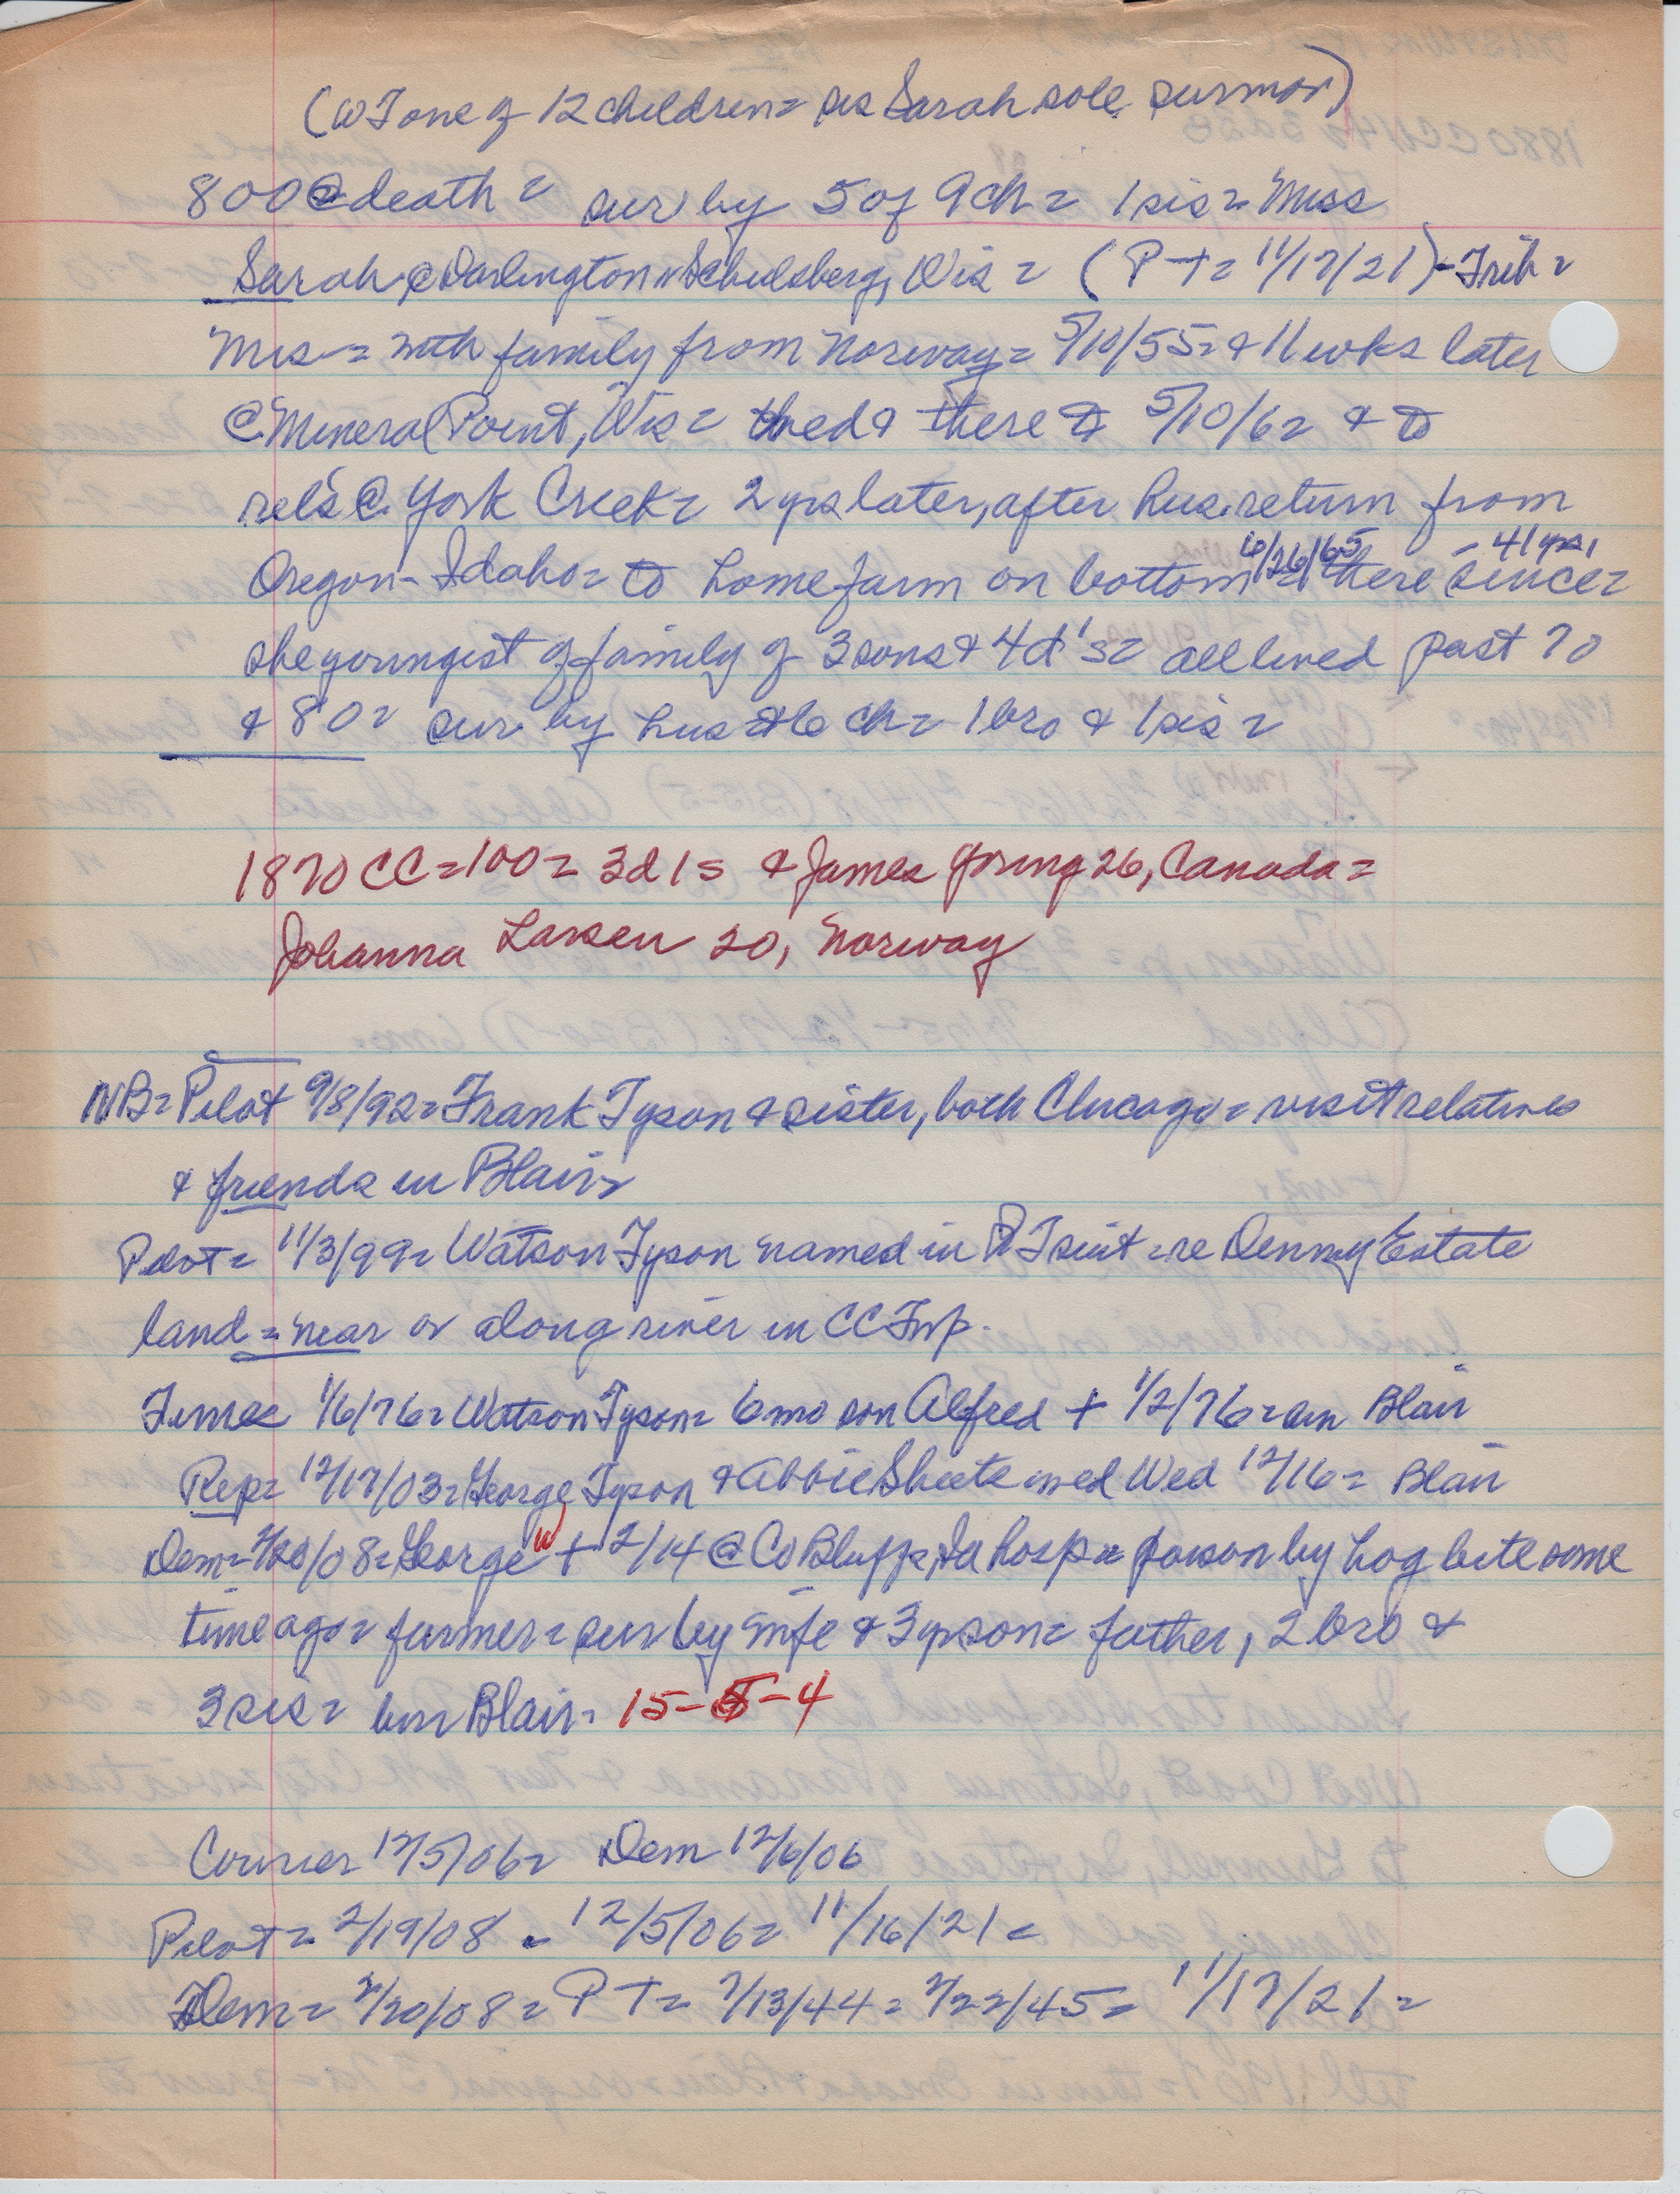 (WT one of 12 children = sis Sarah sole survivor)
800 @ death = sur by 5 of 9 ch = 1 sis = Miss
Sarah @ Darlington Schulsberg, Wis = (PT = 11/17/21) - Trib =
Mrs = with family from Norway = 5/10/55 = & 11 wks later
@ Mineral Point, Wis = & there to 5/10/62 & to
rel's @ York Creek = 2 yrs later, after hus. return from
Oregon - Idaho = to home farm on bottom = 6/26/65 there since = - 41 yrs,
she youngest of family of 3 sons & 4 d's = all lived past 70
& 80 = sur by hus & 6 ch = 1 bro & 1 sis =
1870 CC = 100 = 3d 1s & James Young 26, Canada =
Johanna Larsen 20, Norway
NB = Pilot 9/8/92 = Frank Tyson & sister, both Chicago = visit relatives
& friends in Blair =
Pilot = 11/3/99 = Watson Tyson named in suit = re Denny Estate
land = near or along river in CC Twp.
Times 1/6/76 = Watson Tyson = 6 mo son Alfred + 1/2/76 = in Blair
Rep = 12/17/03 = George Tyson & Abbie Sheets med Wed 12/16 = Blair
Dem = 2/20/08 = George W + 2/14 @ Co Bluffs, Ia hosp = poison by hog bite some
time ago = farmer = sur by wife & 3 yr son = father, 2 bro &
3 sis = bur Blair = 15-5-4
Courier 12/5/06 = Dem 12/6/06
Pilot = 2/19/08 = 12/5/06 = 11/16/21 =
Dem = 2/20/08 = PT = 7/13/44 = 2/22/45 = 11/17/21 =